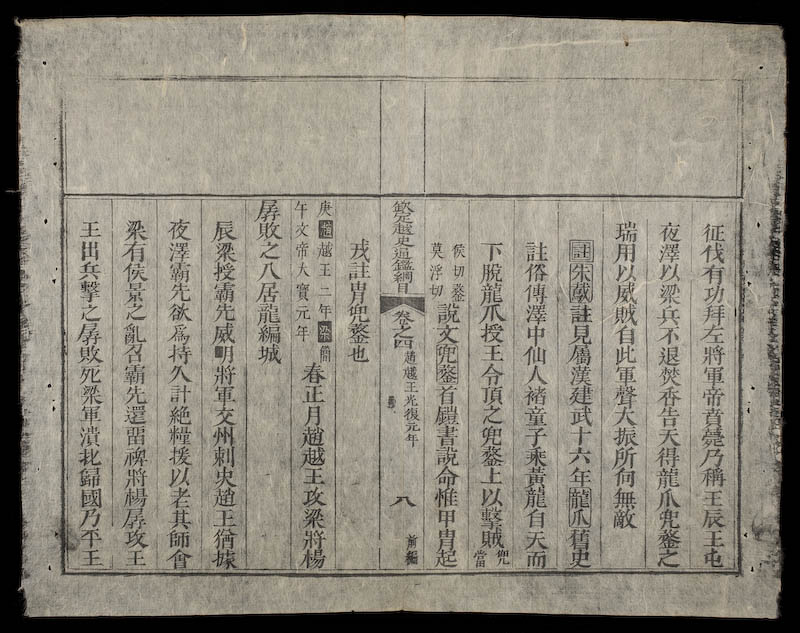 征伐有功拜左將軍帝賁薨乃稱王辰王屯
夜澤以梁兵不退焚香告天得龍爪兜鍪之
瑞用以威賊自此軍聲大振所向無敵
註朱䳒註見屬漢建武十六年龍爪舊史
註俗傳澤中仙人褚童子乘黃龍自天而
下脫龍爪授王令頂之兜鍪上以擊賊兜當
侯切鍪莫浮切說文兜鍪首鎧書說命惟甲冑起
欽定越史通鑑綱目 卷之四 趙越王光復元年 八 前編
戎註冑兜鍪也
庚午趙越王二年梁簡文帝大寶元年春正月趙越王攻梁將楊
孱敗之入居龍編城
辰梁授霸先威明將軍交州刺史趙王猶據
夜澤霸先欲爲持久計絕糧援以老其師會
梁有侯景之亂召霸先還留裨將楊孱攻王
王出兵擊之孱敗死梁軍潰北歸國乃平王